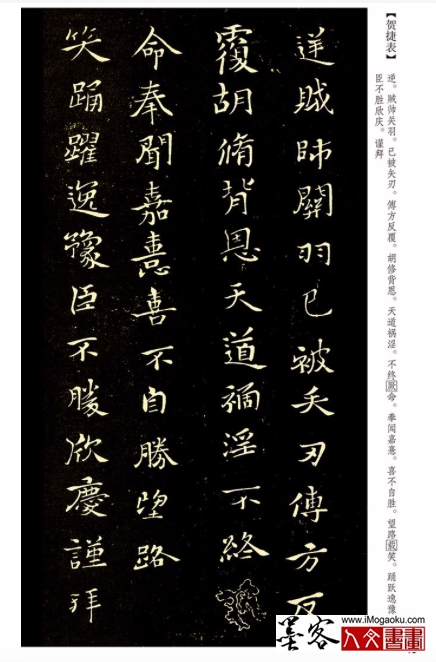 【贺捷表】
逆。贼帅关羽。已被矢刃。傅方反覆。胡修背恩。天道祸淫。不终厥命。奉闻嘉憙。喜不自胜。望路载笑。踊跃逸豫
臣不胜欣庆。谨拜
逆賊帥關羽已被矢刃傅方反
覆胡脩背恩天道禍淫不終
命奉聞嘉憙喜不自勝望路
笑踊躍逸豫臣不勝欣慶謹拜
www.iMogaoku.com
墨客人文書畫